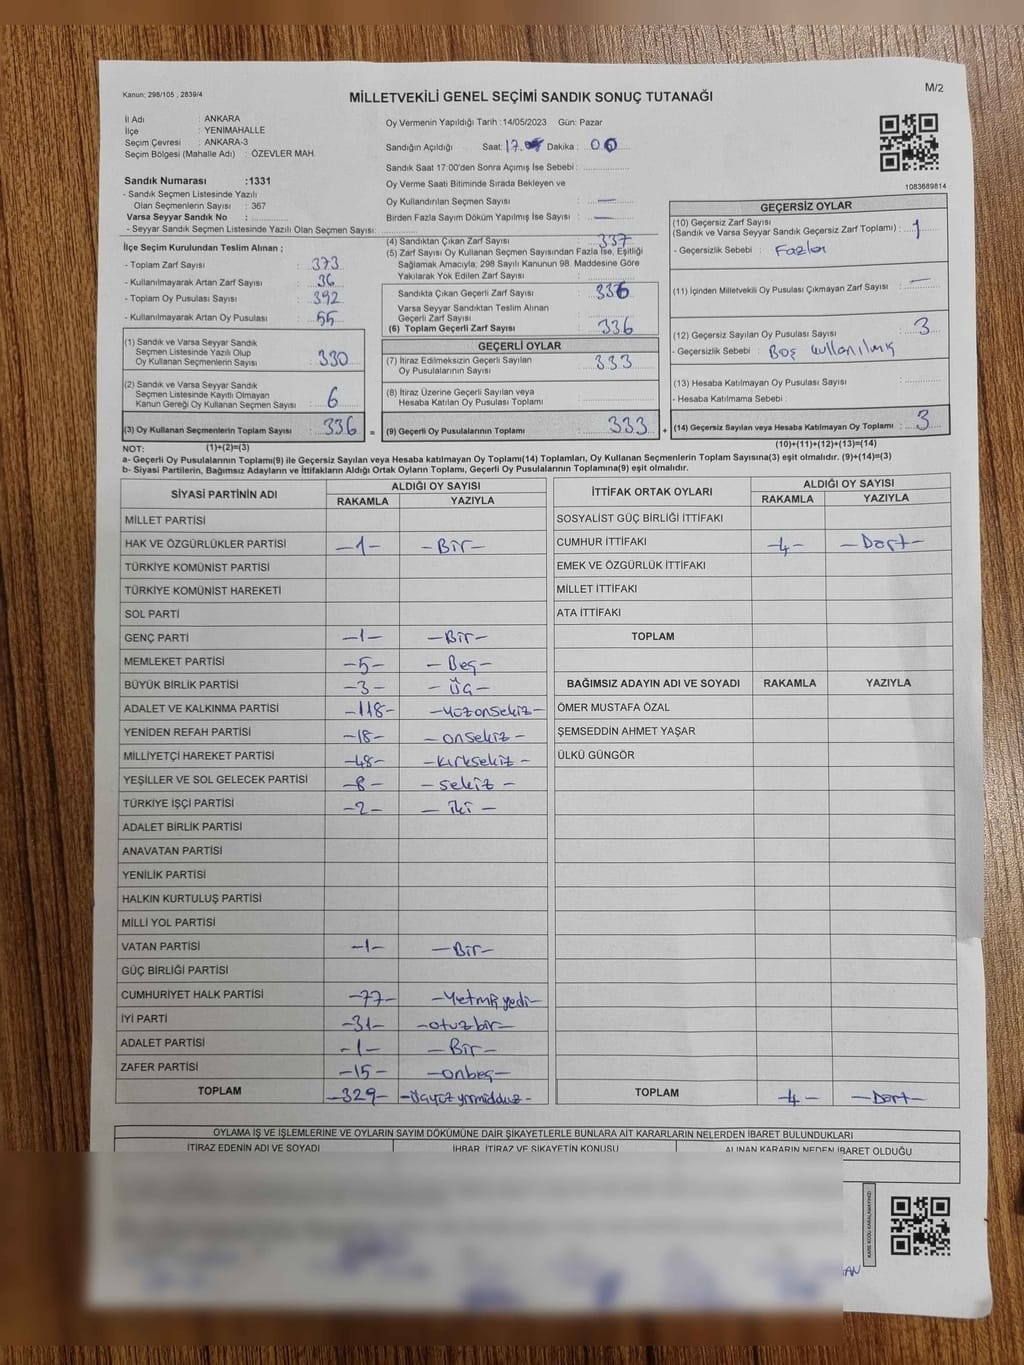 Kanun; 298/105 , 2839/4
MİLLETVEKİLİ GENEL SEÇİMİ SANDIK SONUÇ TUTANAĞI
M/2
İl Adı : ANKARA
İlçe : YENİMAHALLE
Seçim Çevresi : ANKARA-3
Seçim Bölgesi (Mahalle Adı) : ÖZEVLER MAH.
Oy Vermenin Yapıldığı Tarih :14/05/2023 Gün: Pazar
Sandığın Açıldığı Saat: 17. Dakika : 00
Sandık Saat 17:00'den Sonra Açımış İse Sebebi :
Oy Verme Saati Bitiminde Sırada Bekleyen ve
Oy Kullandırılan Seçmen Sayısı : —
Birden Fazla Sayım Döküm Yapılmış İse Sayısı : —
Sandık Numarası :1331
- Sandık Seçmen Listesinde Yazılı
Olan Seçmenlerin Sayısı : 367
Varsa Seyyar Sandık No :
- Seyyar Sandık Seçmen Listesinde Yazılı Olan Seçmen Sayısı:
1083689814
İlçe Seçim Kurulundan Teslim Alınan ;
- Toplam Zarf Sayısı : 373
- Kullanılmayarak Artan Zarf Sayısı : 36
- Toplam Oy Pusulası Sayısı : 392
- Kullanılmayarak Artan Oy Pusulası : 55
(1) Sandık ve Varsa Seyyar Sandık
Seçmen Listesinde Yazılı Olup
Oy Kullanan Seçmenlerin Sayısı : 330
(2) Sandık ve Varsa Seyyar Sandık
Seçmen Listesinde Kayıtlı Olmayan
Kanun Gereği Oy Kullanan Seçmen Sayısı : 6
(3) Oy Kullanan Seçmenlerin Toplam Sayısı : 336 =
(4) Sandıktan Çıkan Zarf Sayısı : 337
(5) Zarf Sayısı Oy Kullanan Seçmen Sayısından Fazla İse, Eşitliği
Sağlamak Amacıyla; 298 Sayılı Kanunun 98. Maddesine Göre
Yakılarak Yok Edilen Zarf Sayısı :
Sandıkta Çıkan Geçerli Zarf Sayısı : 336
Varsa Seyyar Sandıktan Teslim Alınan
Geçerli Zarf Sayısı :
(6) Toplam Geçerli Zarf Sayısı : 336
GEÇERLİ OYLAR
(7) İtiraz Edilmeksizin Geçerli Sayılan
Oy Pusulalarının Sayısı : 333
(8) İtiraz Üzerine Geçerli Sayılan veya
Hesaba Katılan Oy Pusulası Toplamı :
(9) Geçerli Oy Pusulalarının Toplamı : 333 +
GEÇERSİZ OYLAR
(10) Geçersiz Zarf Sayısı
(Sandık ve Varsa Seyyar Sandık Geçersiz Zarf Toplamı) : 1
- Geçersizlik Sebebi : Fazla
(11) İçinden Milletvekili Oy Pusulası Çıkmayan Zarf Sayısı : —
(12) Geçersiz Sayılan Oy Pusulası Sayısı : 3
- Geçersizlik Sebebi : Boş kullanılmış
(13) Hesaba Katılmayan Oy Pusulası Sayısı :
- Hesaba Katılmama Sebebi :
(14) Geçersiz Sayılan veya Hesaba Katılmayan Oy Toplamı : 3
NOT: (1)+(2)=(3) (10)+(11)+(12)+(13)=(14)
a- Geçerli Oy Pusulalarının Toplamı(9) ile Geçersiz Sayılan veya Hesaba katılmayan Oy Toplamı(14) Toplamları, Oy Kullanan Seçmenlerin Toplam Sayısına(3) eşit olmalıdır. (9)+(14)=(3)
b- Siyasi Partilerin, Bağımsız Adayların ve İttifakların Aldığı Ortak Oyların Toplamı, Geçerli Oy Pusulalarının Toplamına(9) eşit olmalıdır.
SİYASİ PARTİNİN ADI ALDIĞI OY SAYISI
RAKAMLA YAZIYLA
MİLLET PARTİSİ
HAK VE ÖZGÜRLÜKLER PARTİSİ -1- -Bir-
TÜRKİYE KOMÜNİST PARTİSİ
TÜRKİYE KOMÜNİST HAREKETİ
SOL PARTİ
GENÇ PARTİ -1- -Bir-
MEMLEKET PARTİSİ -5- -Beş-
BÜYÜK BİRLİK PARTİSİ -3- -Üç-
ADALET VE KALKINMA PARTİSİ -118- -Yüzonsekiz-
YENİDEN REFAH PARTİSİ -18- -onsekiz-
MİLLİYETÇİ HAREKET PARTİSİ -48- -kırksekiz-
YEŞİLLER VE SOL GELECEK PARTİSİ -8- -sekiz-
TÜRKİYE İŞÇİ PARTİSİ -2- -iki-
ADALET BİRLİK PARTİSİ
ANAVATAN PARTİSİ
YENİLİK PARTİSİ
HALKIN KURTULUŞ PARTİSİ
MİLLİ YOL PARTİSİ
VATAN PARTİSİ -1- -Bir-
GÜÇ BİRLİĞİ PARTİSİ
CUMHURİYET HALK PARTİSİ -77- -Yetmişyedi-
İYİ PARTİ -31- -otuzbir-
ADALET PARTİSİ -1- -Bir-
ZAFER PARTİSİ -15- -onbeş-
TOPLAM -329- -Üçyüzyirmidokuz-
İTTİFAK ORTAK OYLARI ALDIĞI OY SAYISI
RAKAMLA YAZIYLA
SOSYALİST GÜÇ BİRLİĞİ İTTİFAKI
CUMHUR İTTİFAKI -4- -Dört-
EMEK VE ÖZGÜRLÜK İTTİFAKI
MİLLET İTTİFAKI
ATA İTTİFAKI
TOPLAM
BAĞIMSIZ ADAYIN ADI VE SOYADI RAKAMLA YAZIYLA
ÖMER MUSTAFA ÖZAL
ŞEMSEDDİN AHMET YAŞAR
ÜLKÜ GÜNGÖR
TOPLAM -4- -Dört-
OYLAMA İŞ VE İŞLEMLERİNE VE OYLARIN SAYIM DÖKÜMÜNE DAİR ŞİKAYETLERLE BUNLARA AİT KARARLARIN NELERDEN İBARET BULUNDUKLARI
İTİRAZ EDENİN ADI VE SOYADI İHBAR, İTİRAZ VE ŞİKAYETİN KONUSU ALINAN KARARIN NEDEN İBARET OLDUĞU
KARE KODU KARALAMAYINIZ!